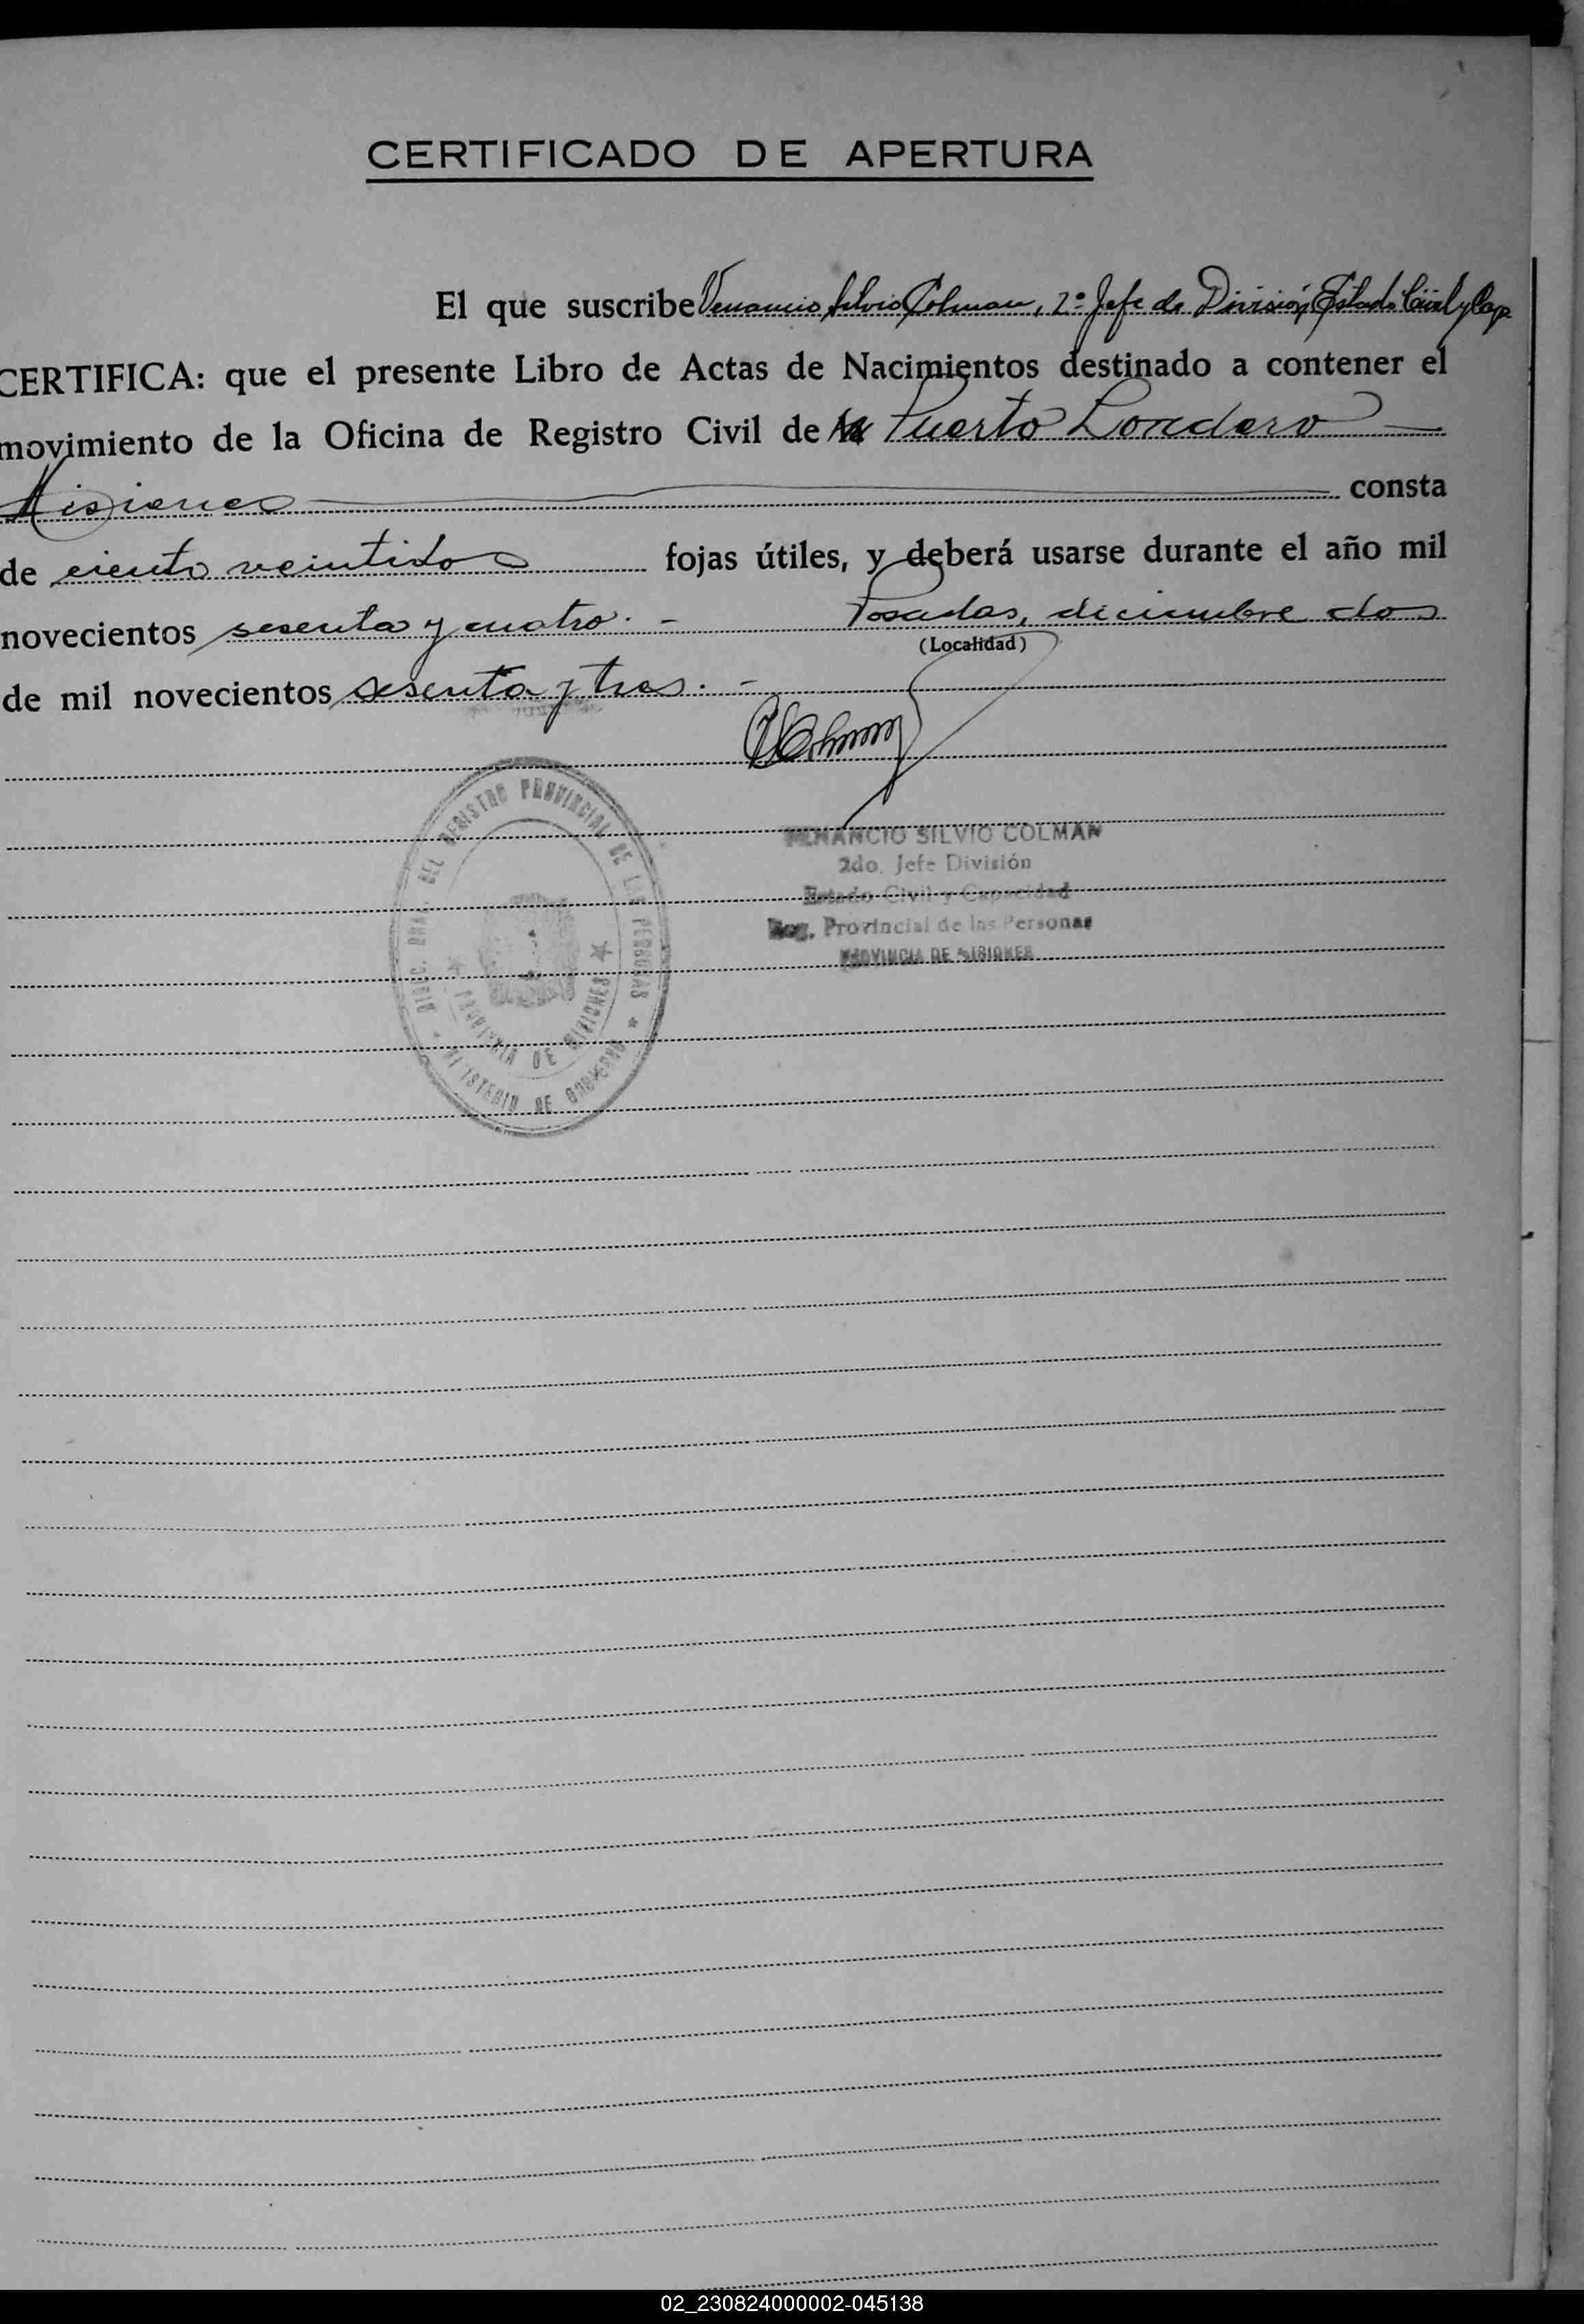 CERTIFICADO DE APERTURA
El que suscribe Venancio Silvio Colman, 2º Jefe de División Estado Civil y Cap.
CERTIFICA: que el presente Libro de Actas de Nacimientos destinado a contener el
movimiento de la Oficina de Registro Civil de Puerto Londero
Misiones consta
de ciento veintidos fojas útiles, y deberá usarse durante el año mil
novecientos sesenta y cuatro. - Posadas, diciembre dos
(Localidad)
de mil novecientos sesenta y tres. -
VENANCIO SILVIO COLMAN
2do. Jefe División
Estado Civil y Capacidad
Reg. Provincial de las Personas
PROVINCIA DE MISIONES
DIREC. GRAL. DEL REGISTRO PROVINCIAL DE LAS PERSONAS
MINISTERIO DE GOBIERNO
PROVINCIA DE MISIONES
02_230824000002-045138